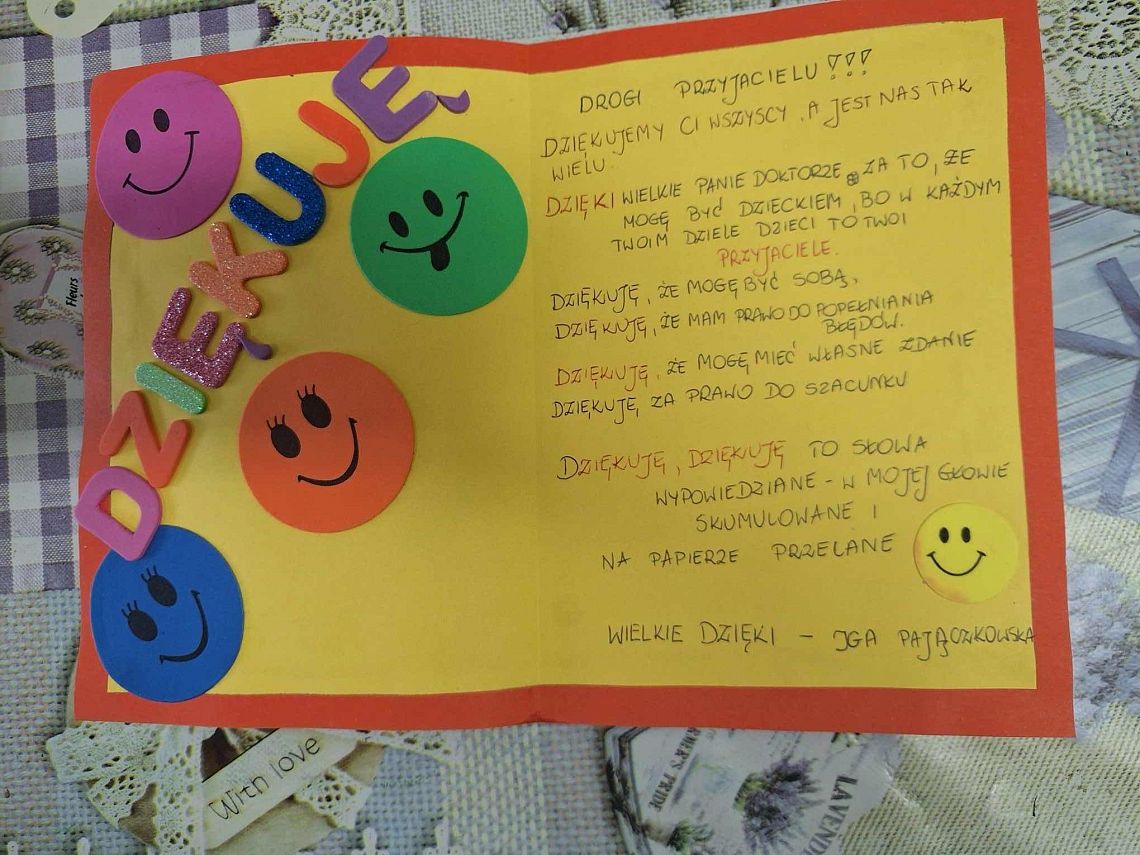 DZIĘKUJĘ
DROGI PRZYJACIELU!!!
DZIĘKUJEMY CI WSZYSCY, A JEST NAS TAK
WIELU.
DZIĘKI WIELKIE PANIE DOKTORZE, ZA TO, ŻE
MOGĘ BYĆ DZIECKIEM, BO W KAŻDYM
TWOIM DZIELE DZIECI TO TWOI
PRZYJACIELE.
DZIĘKUJĘ, ŻE MOGĘ BYĆ SOBĄ,
DZIĘKUJĘ, ŻE MAM PRAWO DO POPEŁNIANIA
BŁĘDÓW.
DZIĘKUJĘ, ŻE MOGĘ MIEĆ WŁASNE ZDANIE
DZIĘKUJĘ, ZA PRAWO DO SZACUNKU
DZIĘKUJĘ, DZIĘKUJĘ TO SŁOWA
WYPOWIEDZIANE - W MOJEJ GŁOWIE
SKUMULOWANE I
NA PAPIERZE PRZELANE
WIELKIE DZIĘKI - IGA PAJĄCZKOWSKA
Fleurs
With love
PRIDE
LAVENDE